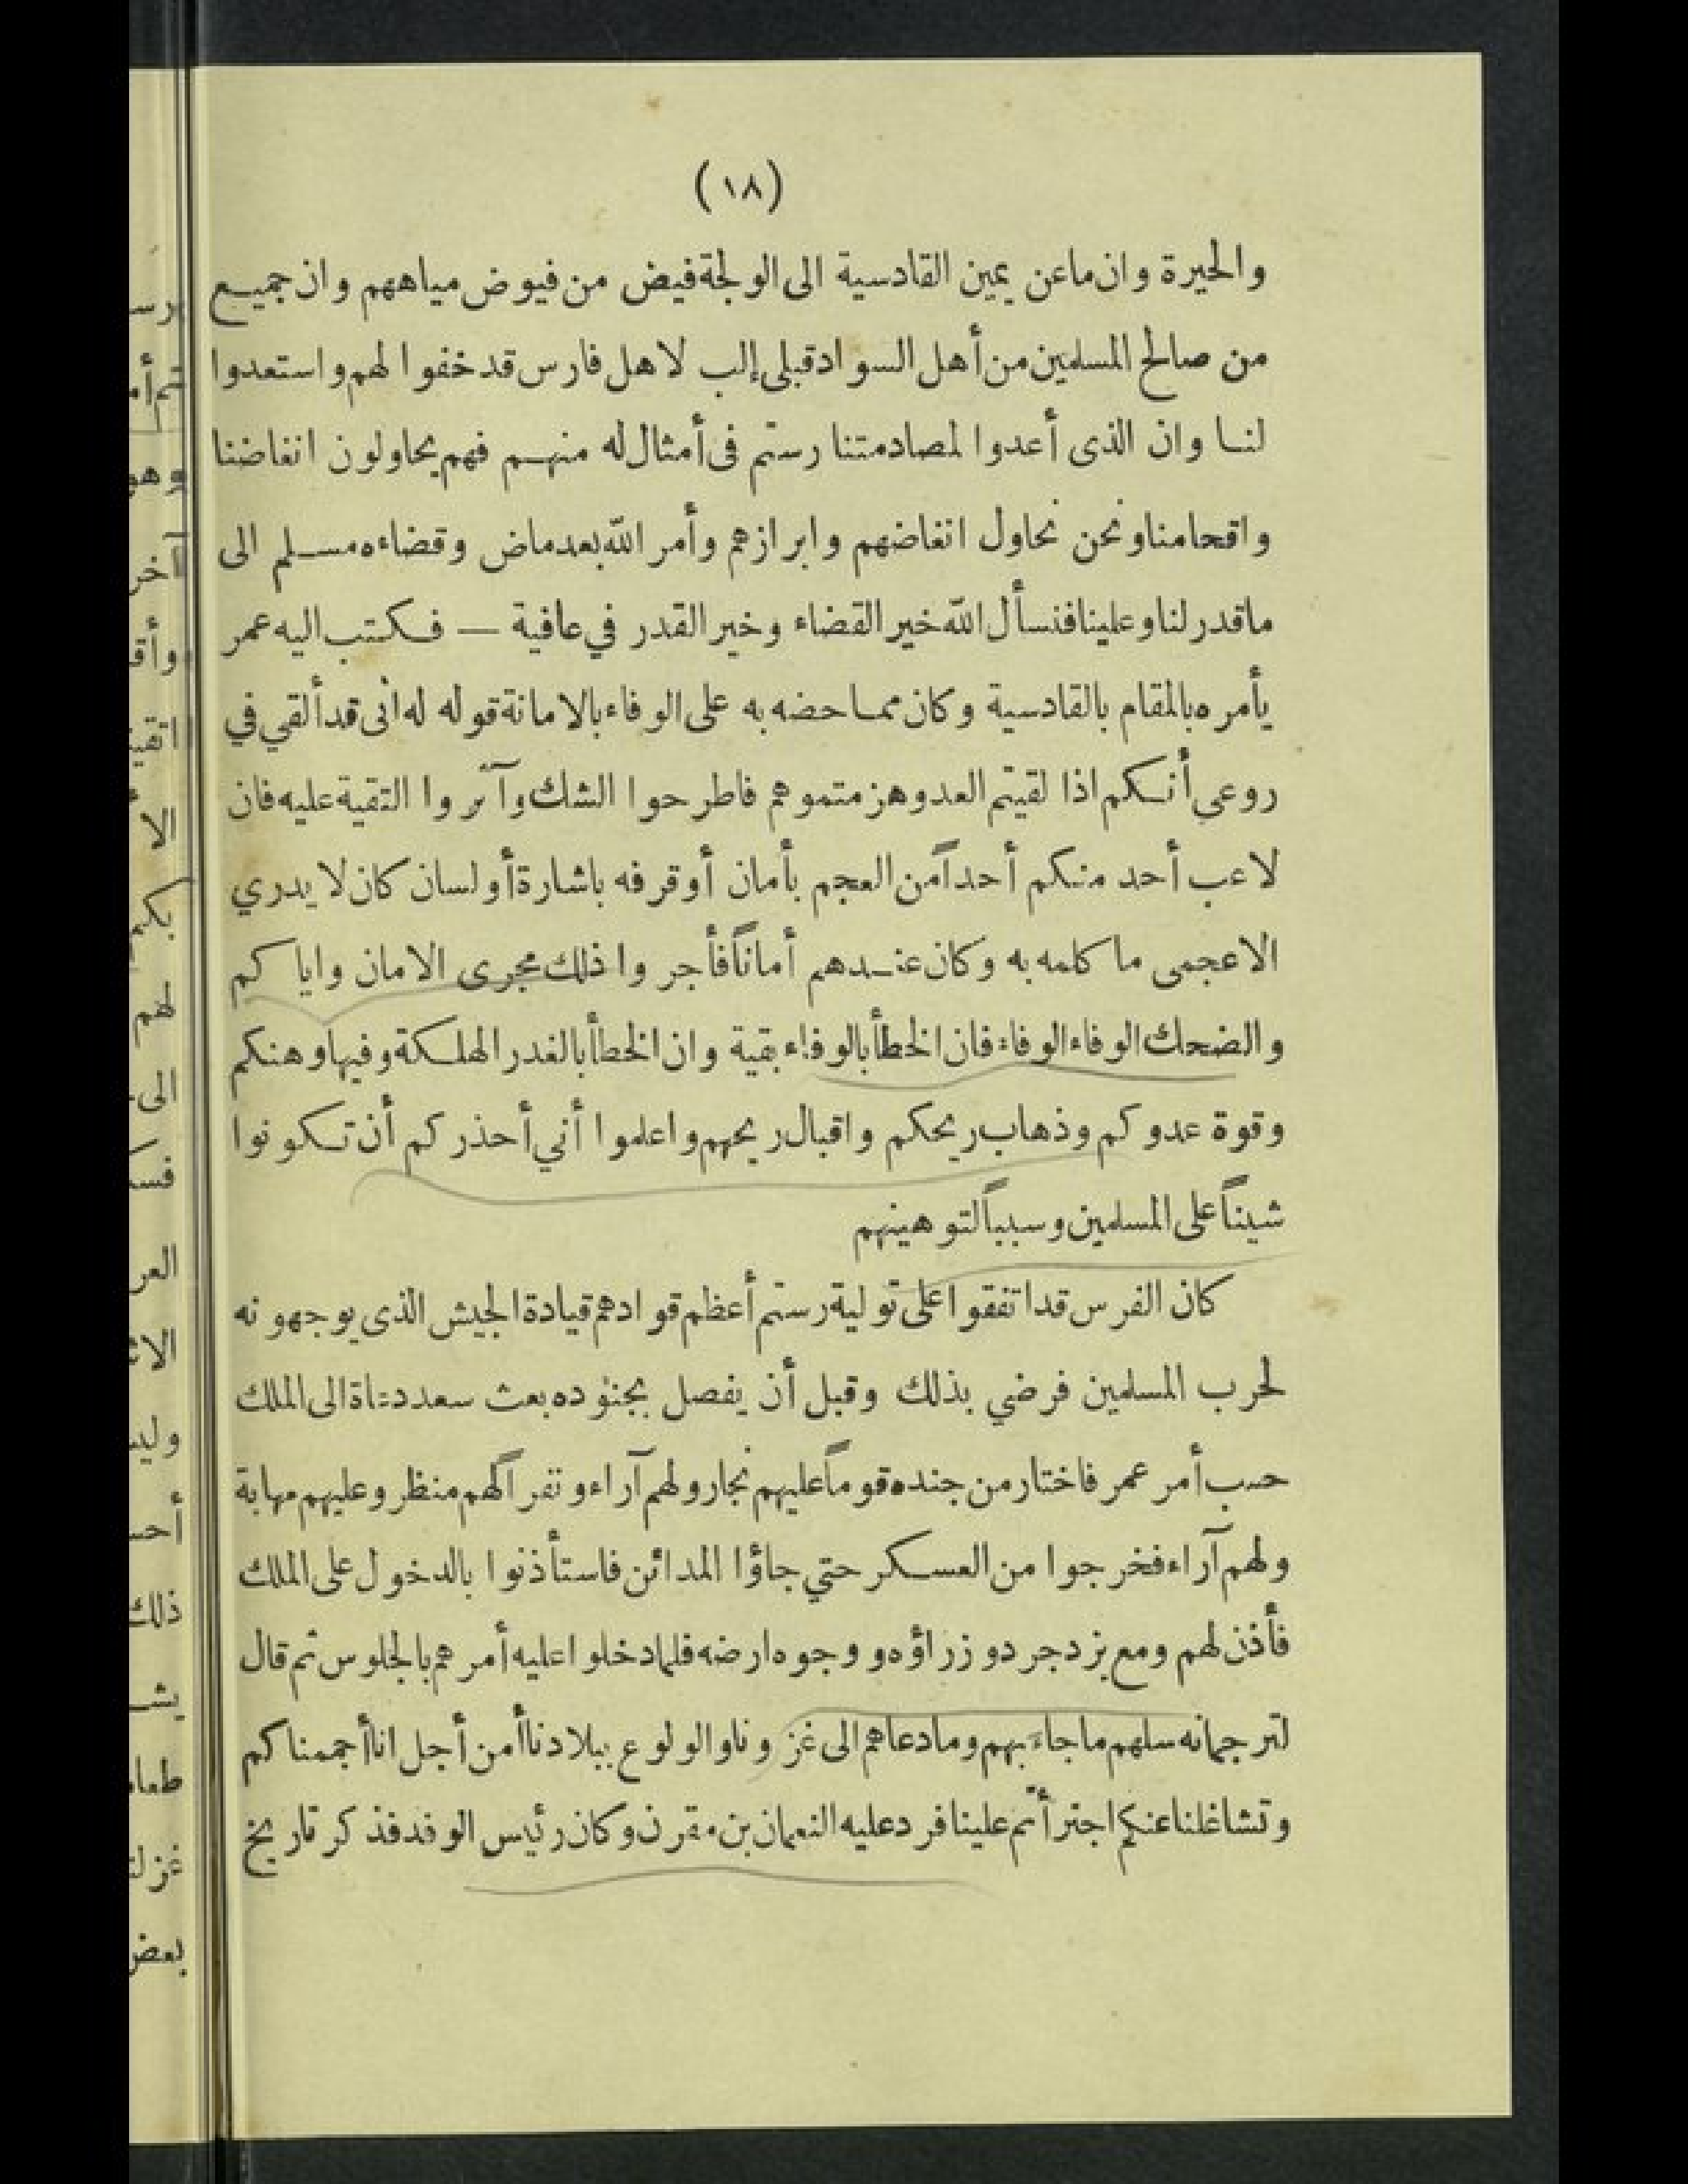 (١٨)
والحيرة وان ماعن يمين القادسية الى الولجة فيض من فيوض مياههم وان جميع
من صالح المسلمين من أهل السواد قبلى إلب لاهل فارس قد خفوا لهم واستعدوا
لنا وان الذى أعدوا لمصادمتنا رستم فى أمثال له منهم فهم يحاولون انغاضنا
واقحامنا ونحن نحاول انغاضهم وابرازهم وأمر الله بعد ماض وقضاءه مسلم الى
ماقدر لنا وعلينا فنسأل الله خير القضاء وخير القدر في عافية — فكتب اليه عمر
يأمره بالمقام بالقادسية وكان مما حضه به على الوفاء بالامانة قوله له انى قد ألقي في
روعى أنكم اذا لقيتم العدو هزمتموهم فاطرحوا الشك وآثروا التقية عليه فان
لاعب أحد منكم أحداً من العجم بأمان أو قرفه باشارة أو لسان كان لا يدري
الاعجمى ما كلمه به وكان عندهم أماناً فأجروا ذلك مجرى الامان واياكم
والضحك الوفاء الوفاء فان الخطأ بالوفاء بقية وان الخطأ بالغدر الهلكة وفيها وهنكم
وقوة عدوكم وذهاب ريحكم واقبال ريحهم واعلموا أني أحذركم أن تكونوا
شيناً على المسلمين وسبباً لتوهينهم
كان الفرس قد اتفقوا على تولية رستم أعظم قوادهم قيادة الجيش الذى يوجهونه
لحرب المسلمين فرضي بذلك وقبل أن يفصل بجنوده بعث سعد دعاة الى الملك
حسب أمر عمر فاختار من جنده قوماً عليهم نجار ولهم آراء ونفراً لهم منظر وعليهم مهابة
ولهم آراء فخرجوا من العسكر حتي جاؤا المدائن فاستأذنوا بالدخول على الملك
فأذن لهم ومع يزدجرد وزراؤه و وجوه ارضه فلما دخلوا عليه أمرهم بالجلوس ثم قال
لترجمانه سلهم ماجاء بهم ومادعاهم الى غزونا والولوع ببلادنا أمن أجل انا أجممناكم
وتشاغلنا عنكم اجترأتم علينا فرد عليه النعمان بن مقرن وكان رئيس الوفد فذكر تاريخ